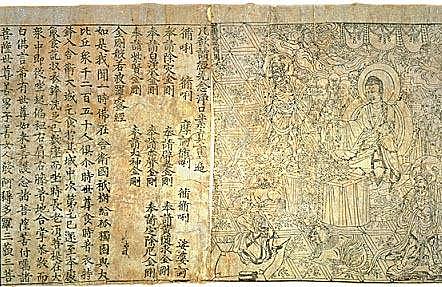 凡欲讀經先念淨口業真言一遍
脩唎 脩唎 摩訶脩唎 脩脩唎 娑婆訶
奉請除災金剛 奉請辟毒金剛 奉請黃隨求金剛
奉請白淨水金剛 奉請赤聲金剛 奉請定除厄金剛
奉請紫賢金剛 奉請大神金剛
金剛般若波羅蜜經
如是我聞一時佛在舍衛國祇樹給孤獨園與大
比丘衆千二百五十人俱尒時世尊食時著衣持
鉢入舍衛大城乞食於其城中次第乞已還至本處
飯食訖收衣鉢洗足已敷座而坐時長老須菩提在大
衆中即從座起偏袒右肩右膝著地合掌恭敬而
白佛言希有世尊如來善護念諸菩薩善付囑諸
菩薩世尊善男子善女人發阿耨多羅三藐三菩